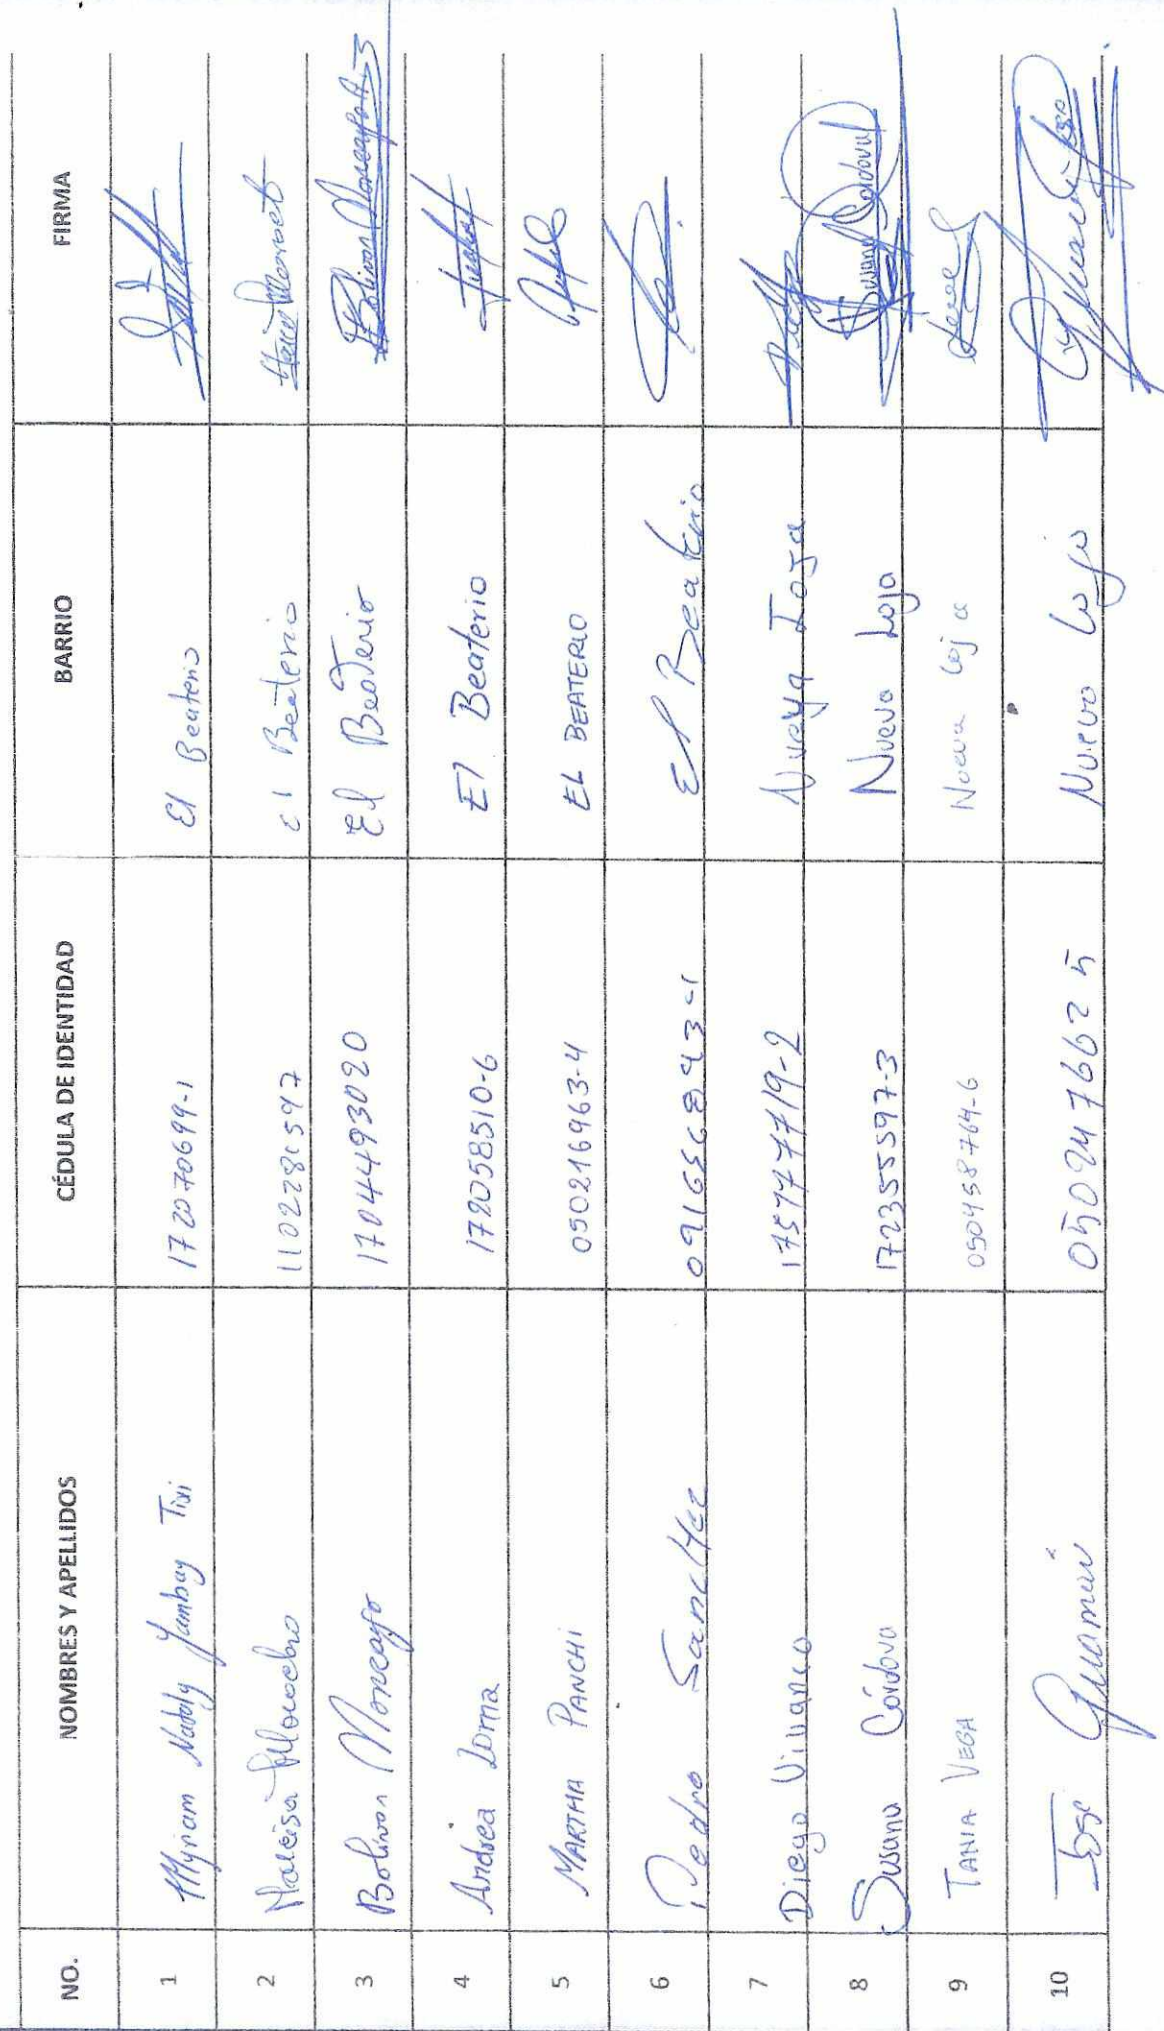 NO. NOMBRES Y APELLIDOS CÉDULA DE IDENTIDAD BARRIO FIRMA
1 Myriam Nataly Yambay Tixi 172070699-1 El Beaterio
2 Narcisa 1102281597 El Beaterio
3 Bolívar Moncayo 1704493020 El Beaterio Bolivar Moncayo
4 Andrea Loma 172058510-6 El Beaterio
5 MARTHA PANCHI 050216963-4 EL BEATERIO
6 Pedro Sanchez El Beaterio
7 Diego Villarico 175177719-2 Nueva Loja
8 Susana Córdova 172355597-3 Nueva Loja Susana Cordova
9 TANIA VEGA 050458764-6 Nueva Loja
10 José Guamán 0502476625 Nueva Loja